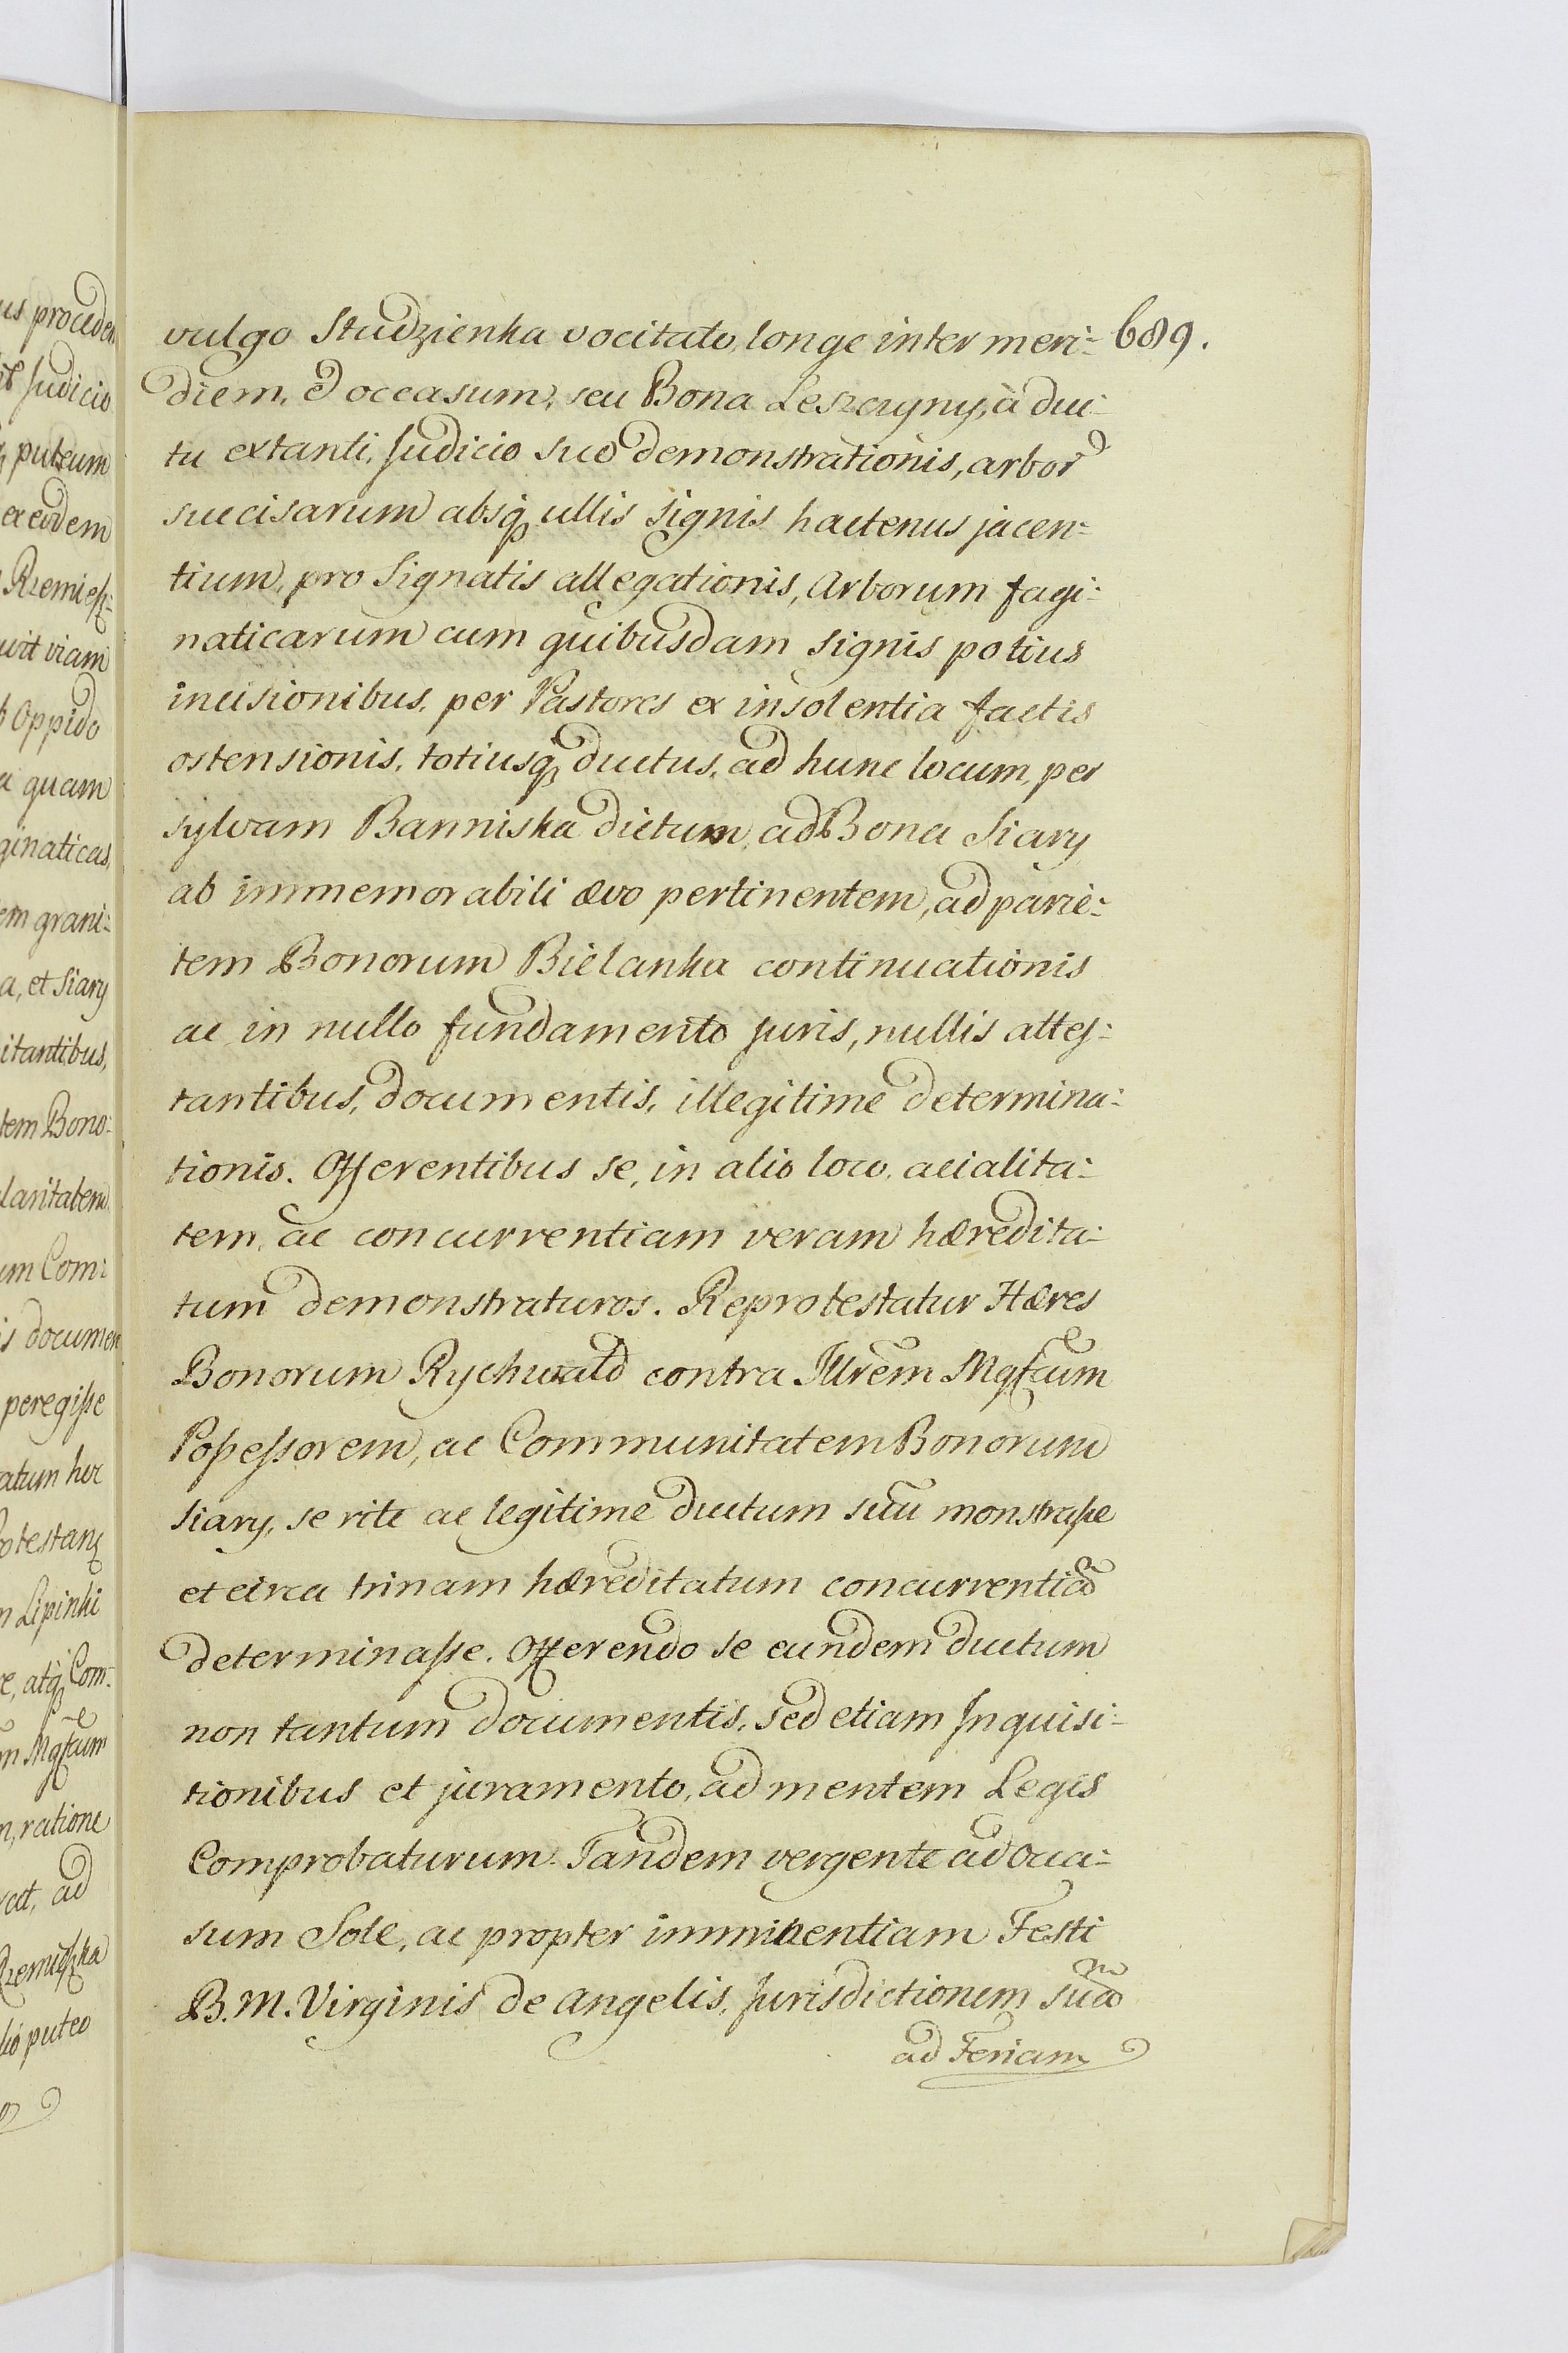 689.
vulgo Studzienka vocitato, longe inter meri-
diem, & occasum, seu Bona Leszczyny, à duc-
tu extanti, Judicio suo demonstrationis, arbor
succisarum absq ullis signis hactenus jacen-
tium, pro Signatis allegationis, Arborum fagi-
naticarum cum quibusdam signis potius
incisionibus, per Pastores ex insolentia factis
ostensionis, totiusq ductus, ad hunc locum, per
sylvam Banniska dictum, ad Bona Siary
ab immemorabili ævo pertinentem, ad parie-
tem Bonorum Bielanka continuationis
ac in nullo fundamento Juris, nullis attes-
tantibus, documentis, illegitime determina-
tionis. Offerentibus se, in alio loco, acialita-
tem, ac concurrentiam veram hæredita-
tum demonstraturos. Reprotestatur Hæres
Bonorum Rychwald contra Illrem Mgfcum
Possessorem, ac Communitatem Bonorum
Siary, se rite ac legitime ductum suũ monstrasse
et circa trinam hæreditatum concurrentiã
determinasse. Offerendo se eundem ductum
non tantum documentis, sed etiam Inquisi-
tionibus et juramento, ad mentem Legis
Comprobaturum. Tandem vergente ad Occa-
sum Sole, ac propter imminentiam Festi
B. M. Virginis de Angelis, Jurisdictionem suã
ad Feriam